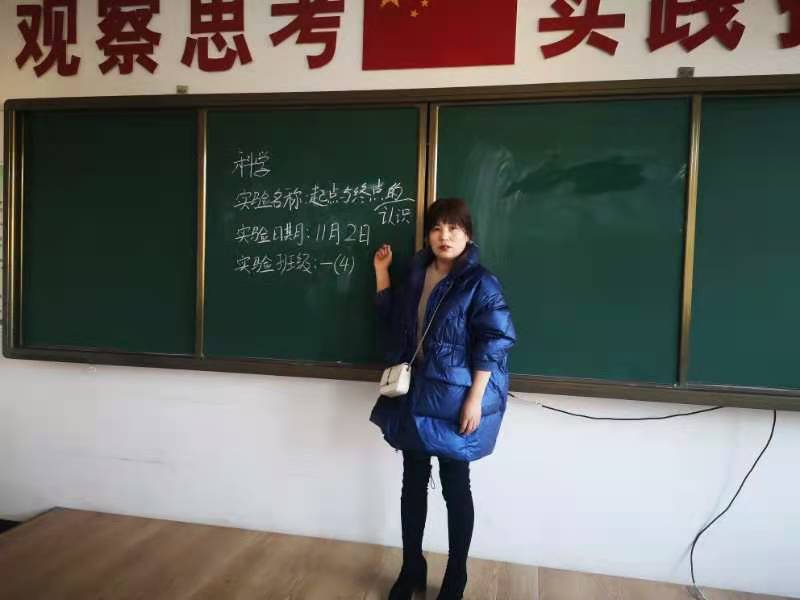 观察思考 实践
科学
实验名称:起点与终点的
认识
实验日期:11月2日
实验班级:一(4)